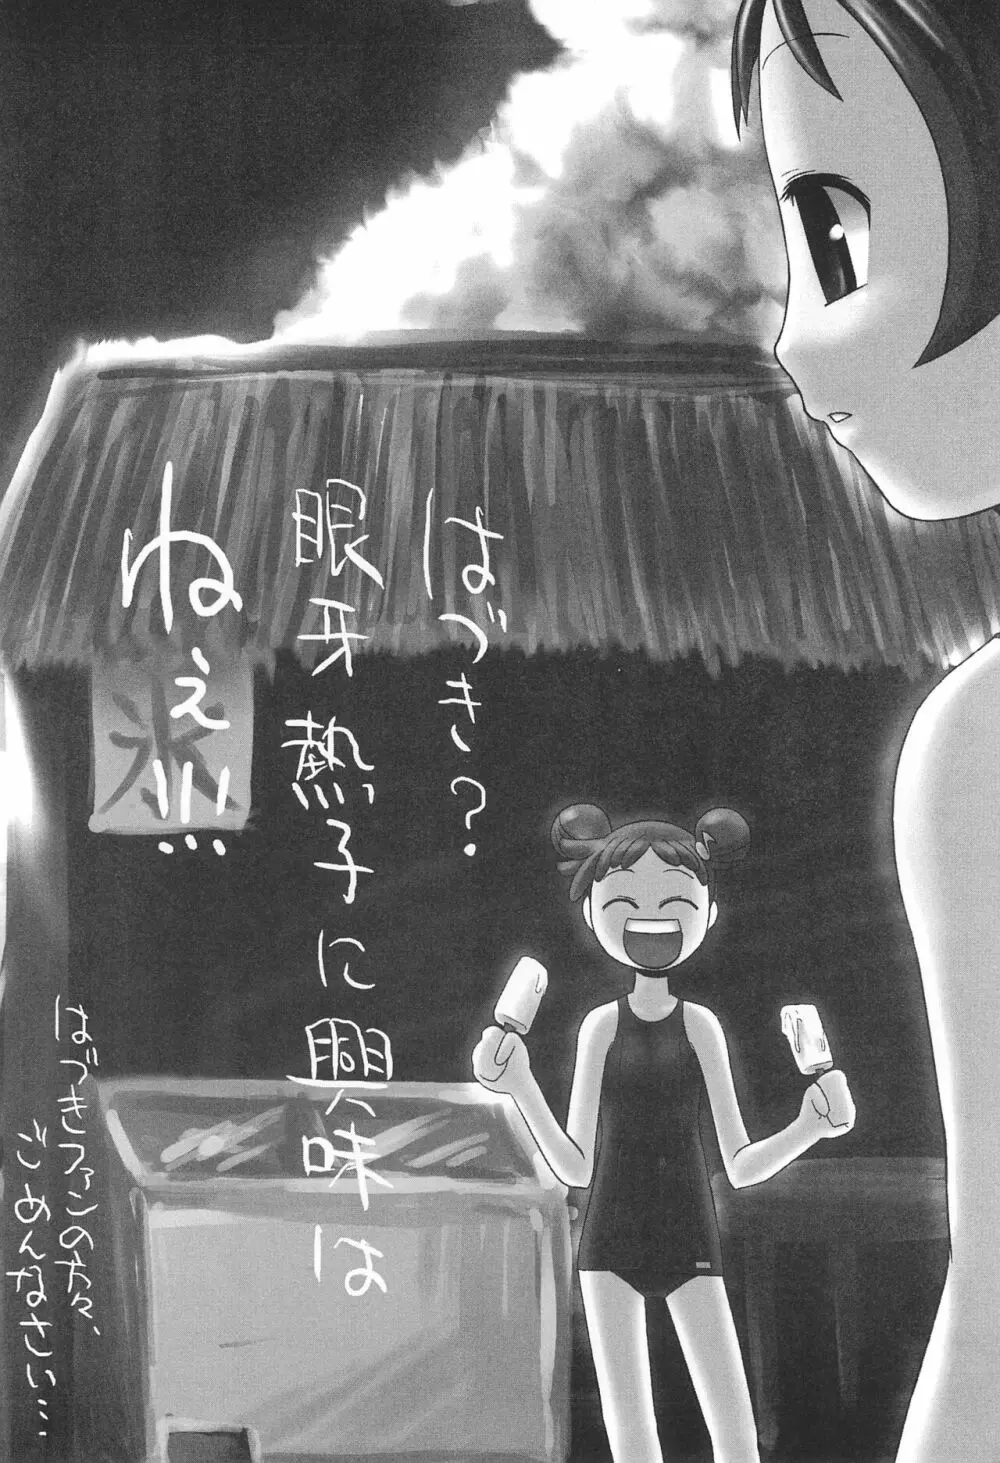 はづき？
眼牙熱子に興味は
ねぇ!!!
氷
はづきファンの方々、
ごめんなさい…